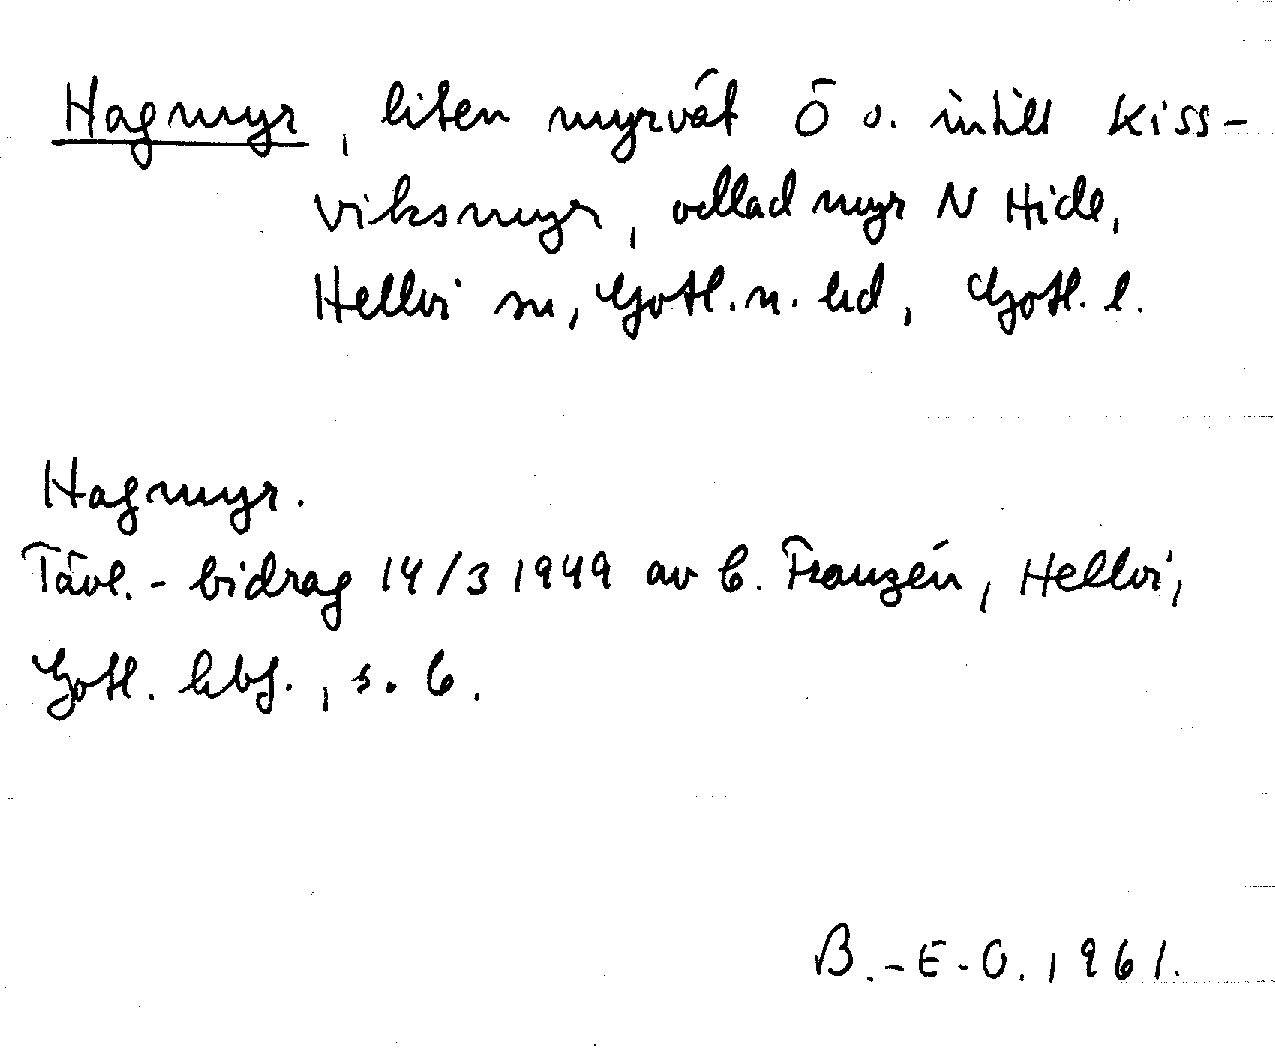 Hagmyr, liten myrvät Ö o. intill Kiss-
viksmyr, odlad myr N Hide,
Hellvi sn, Gotl. n. hd, Gotl. l.
Hagmyr.
Tävl.-bidrag 14/3 1949 av C. Franzén, Hellvi,
Gotl. hbf., s. 6.
B.-E-O. 1961.